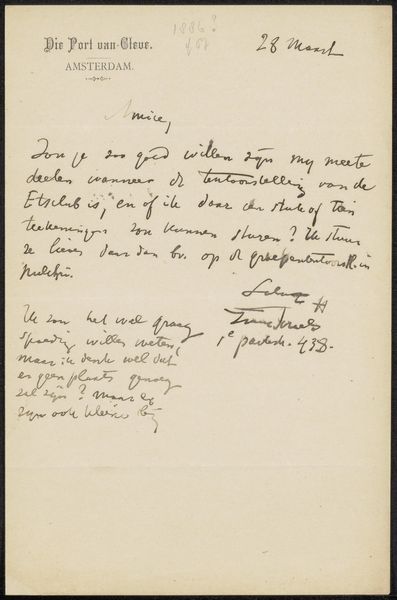 Die Port van Cleve.
AMSTERDAM.
1886?
28 Maart
Amice,
Zou je zoo goed willen zijn my meete
deelen wanneer de tentoonstelling van de
Etsclub is, en of ik daar een stuk of tien
teekeningen zou kunnen sturen? Ik stuur
ze liever daar dan bv. op de groepententoonst. in
Pulchri.
Ik zou het wel graag
spoedig willen weten,
maar ik denk wel dat
er geen plaats genoeg
zal zijn? maar er
zijn ook kleine bij
Isaac Israels
1e 438.